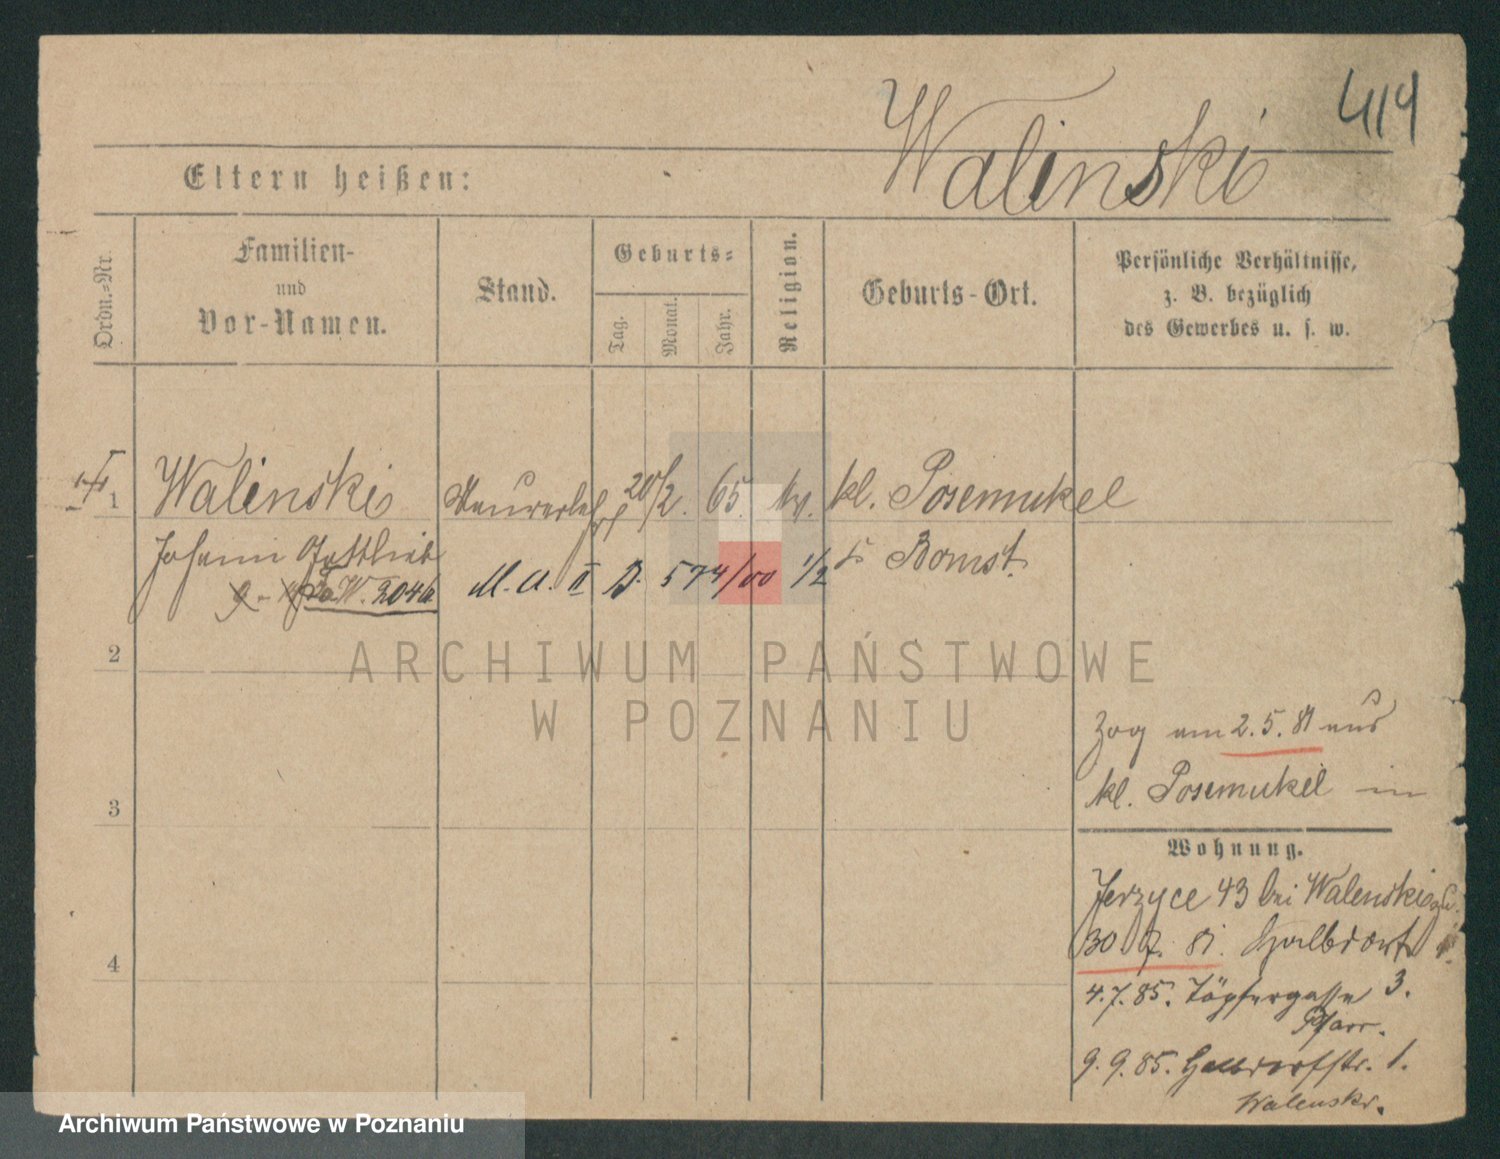 414
Walinski
Eltern heißen:
Ordn.-Nr.
Familien-
und
Vor-Namen.
Stand.
Geburts-
Tag.
Monat.
Jahr.
Religion.
Geburts-Ort.
Persönliche Verhältnisse,
z. B. bezüglich
des Gewerbes u. s. w.
1 Walinski Maurerlehrl 20/2. 65. kl. Posemukel
Johann Gottlieb Bomst.
W. 204a M. A. II D. 574/00 1/2
2
ARCHIWUM PAŃSTWOWE
W POZNANIU
Zog am 2. 5. 81 aus
kl. Posemukel in
3
Wohnung.
Jerzyce 43 bei Walenski
30 7. 81.
4
4. 7. 85. Töpfergasse 3.
Pfarr.
9. 9. 85. 1.
Walenski.
Archiwum Państwowe w Poznaniu